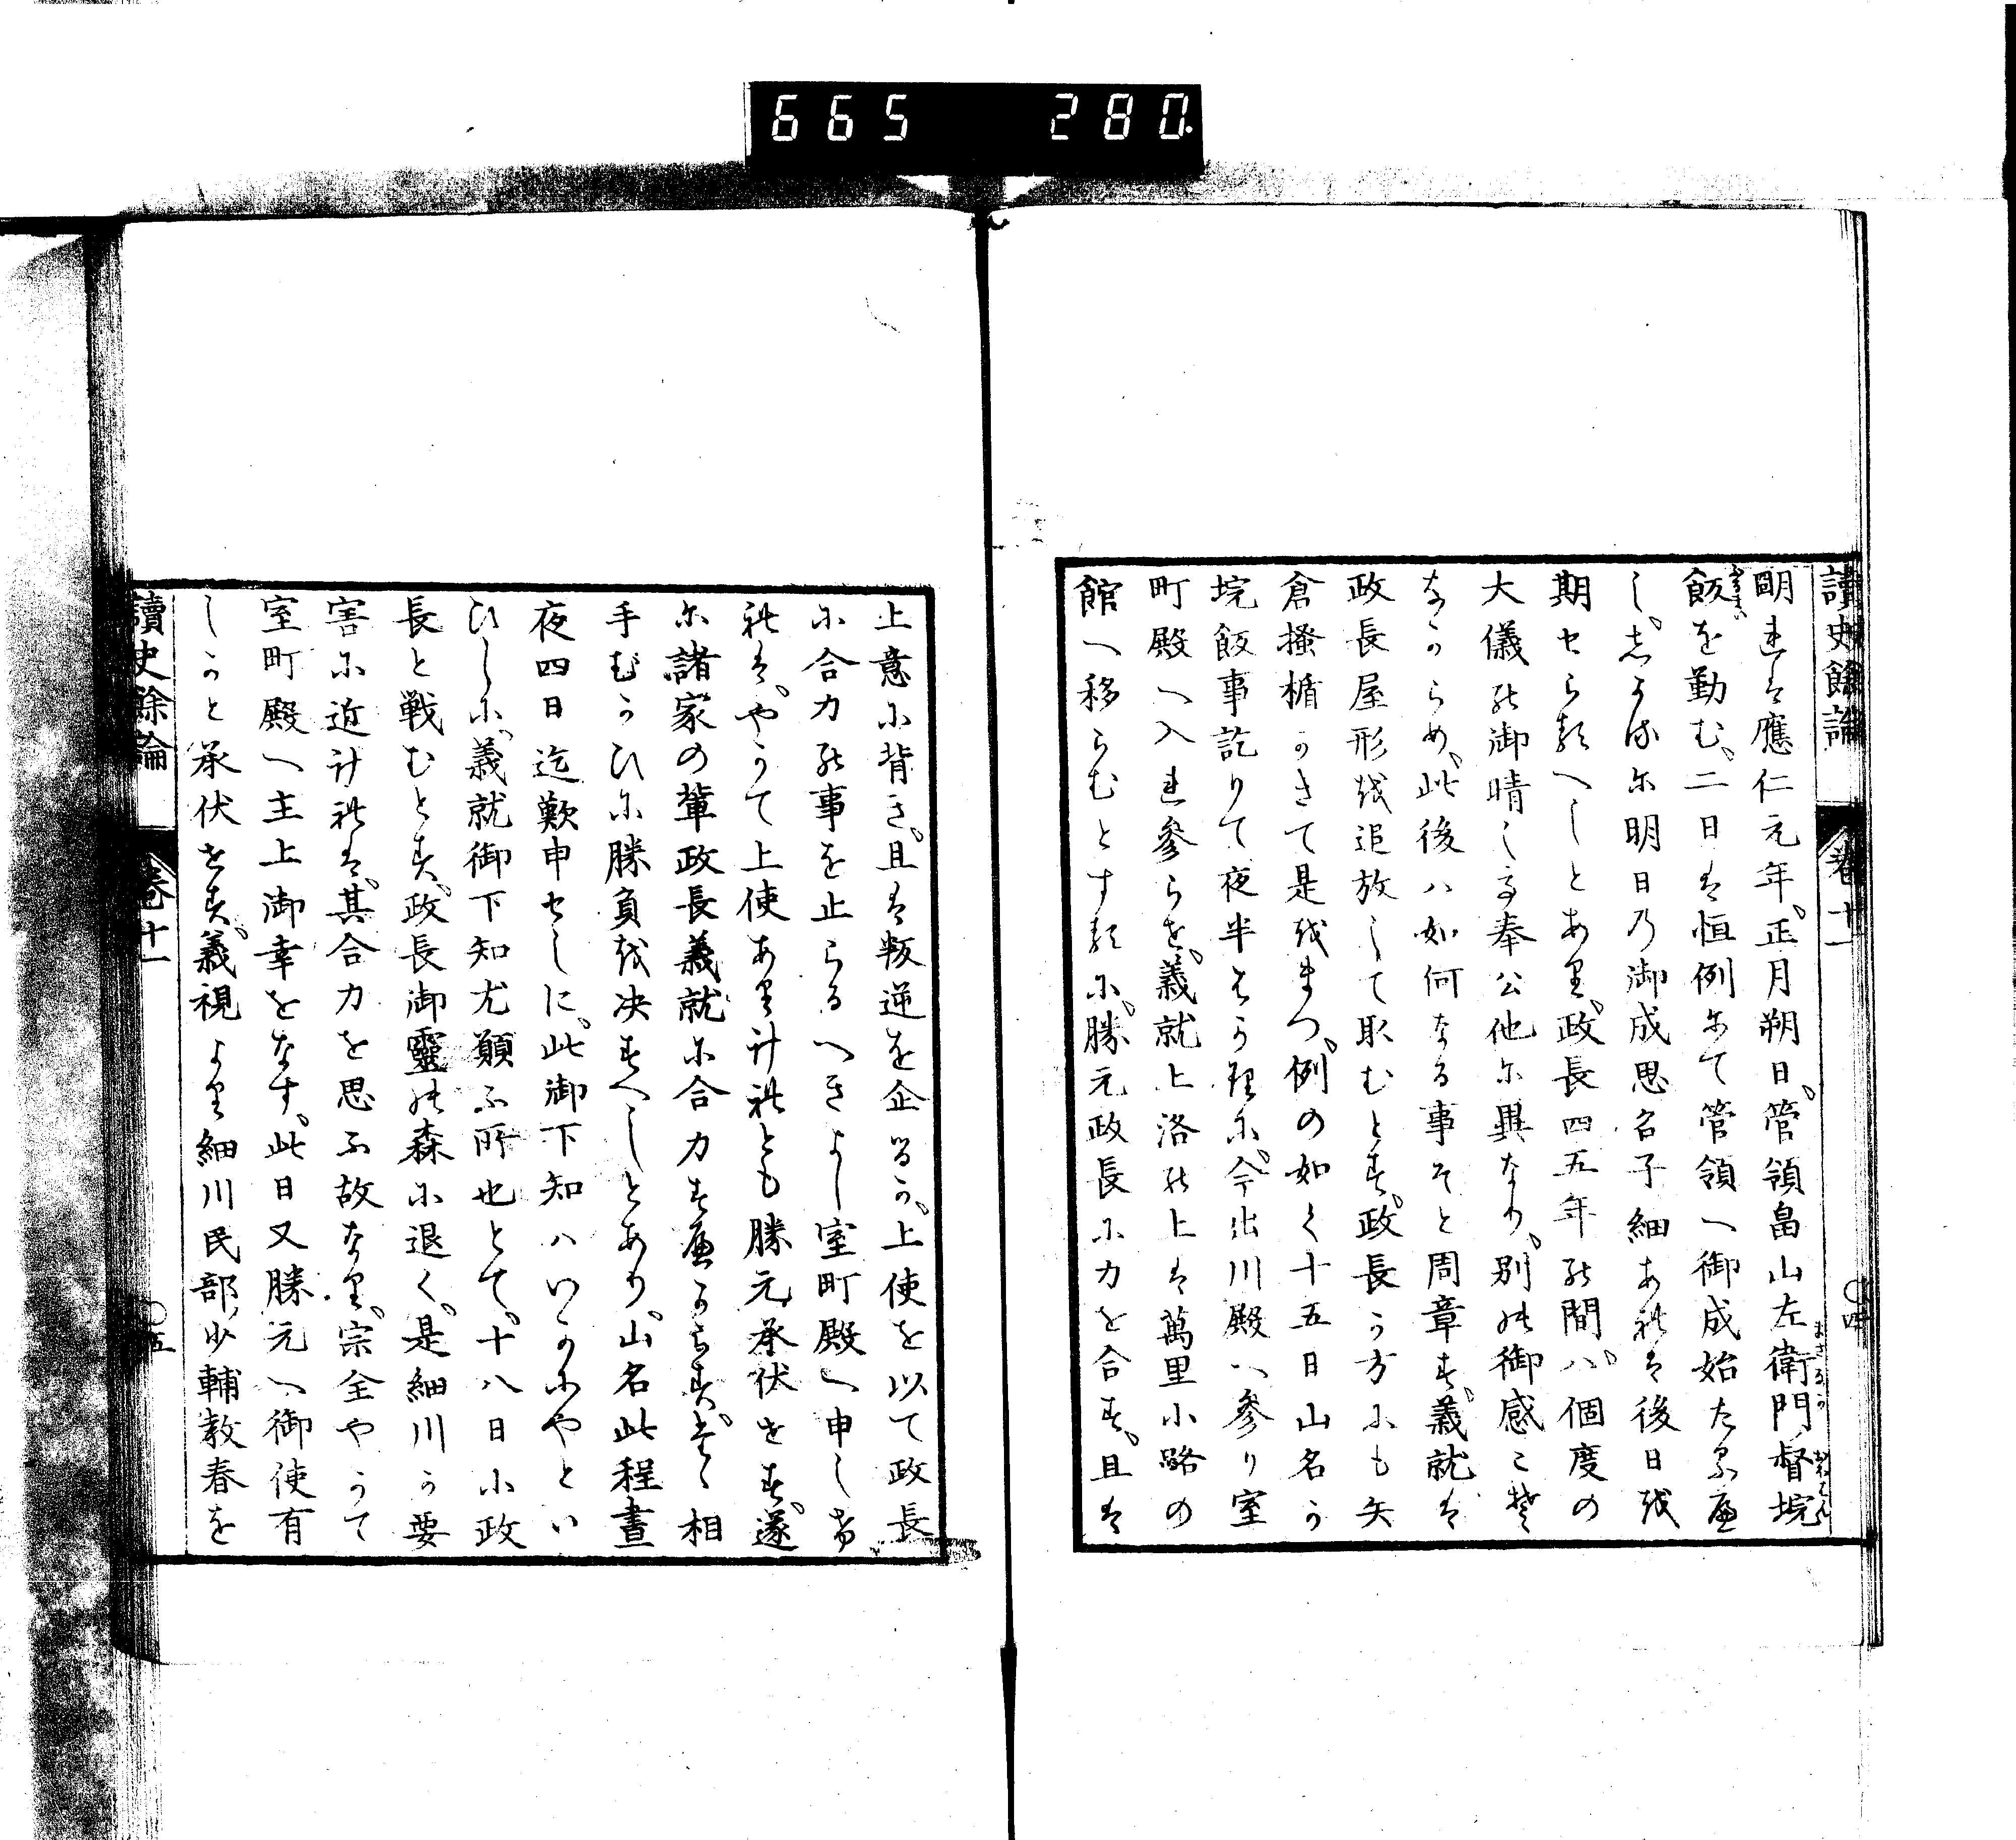 665 280
讀史餘論 卷十一 〇四
明れは應仁元年。正月朔日。管領畠山左衛門督埦
飯を勤む。二日は恒例にて管領へ御成始たるへ
し。しかるに明日乃御成思召子細あれは後日を
期せらるへしとあり。政長四五年の間。八個度の
大儀の御晴し奉公他に異なり。別の御感こそ
なからめ。此後ハ如何なる事そと周章す。義就は
政長屋形を追放して取むとす。政長か方にも矢
倉掻楯かきて是をまつ。例の如く十五日山名か
埦飯事訖りて夜半はかりに。今出川殿へ參り室
町殿へ入れ參らせ。義就上洛の上は萬里小路の
館へ移らむとするに。勝元政長に力を合す。且は
上意に背き。且は叛逆を企るか。上使を以て政長
に合力の事を止らるへきよし室町殿へ申しけ
れは。やかて上使あり計れとも勝元承伏せす。遂
に諸家の輩政長義就に合力すへからす。たゝ相
手むかひに勝負を决すへしとあり。山名此程晝
夜四日迄歎申せしに。此御下知ハいかにやとい
ひしに。義就御下知尤願ふ所也とて。十八日に政
長と戦むとす。政長御靈の森に退く。是細川か要
害に近計れは。其合力を思ふ故なり。宗全やかて
室町殿へ主上御幸をなす。此日又勝元へ御使有
しかと承伏せす。義視より細川民部少輔教春を
讀史餘論 卷十一 〇五